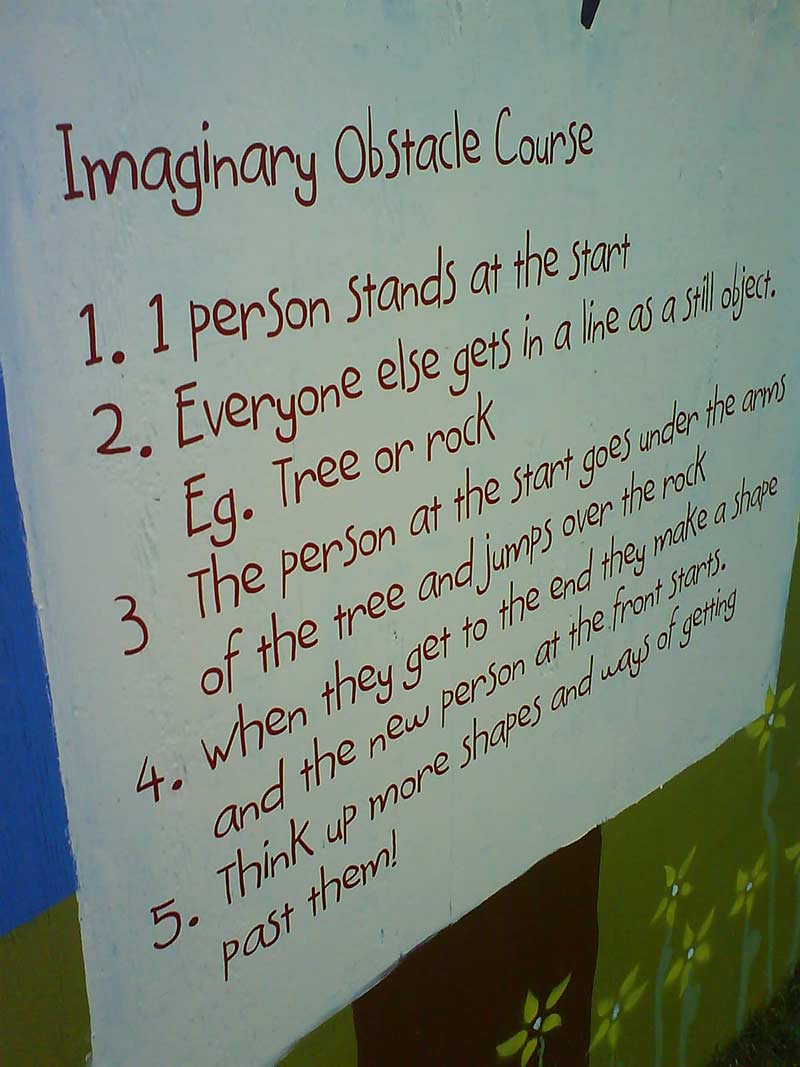 Imaginary Obstacle Course
1. 1 person stands at the start
2. Everyone else gets in a line as a still object.
Eg. Tree or rock
3 The person at the start goes under the arms
of the tree and jumps over the rock
4. when they get to the end they make a shape
and the new person at the front starts.
5. Think up more shapes and ways of getting
past them!